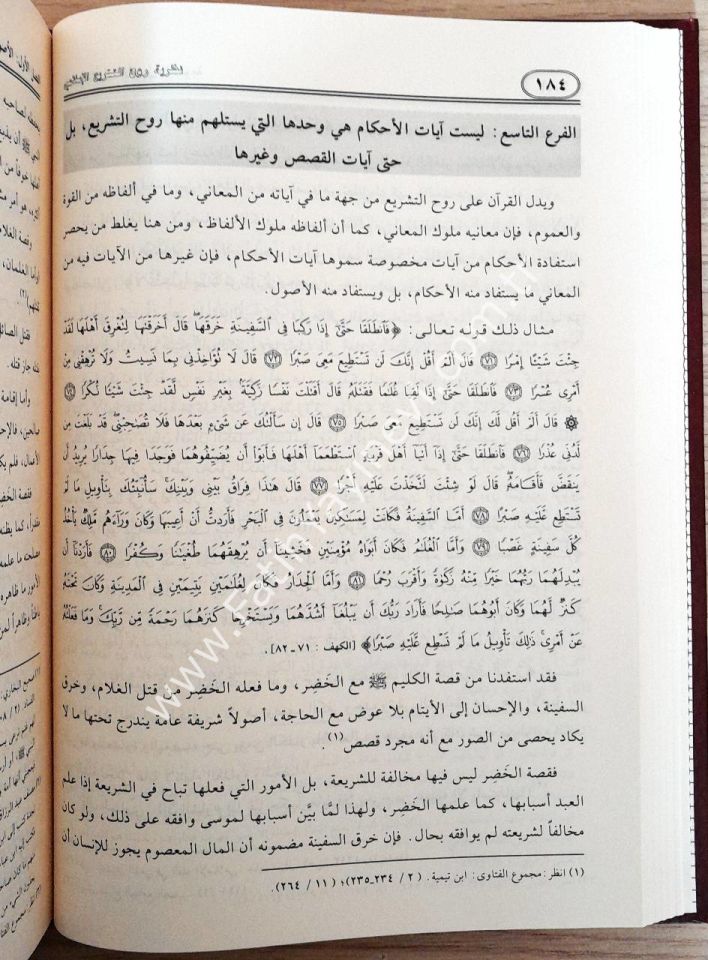 ١٨٤
نظرية روح التشريع الإسلامي
الفرع التاسع: ليست آيات الأحكام هي وحدها التي يستلهم منها روح التشريع، بل
حتى آيات القصص وغيرها
ويدل القرآن على روح التشريع من جهة ما في آياته من المعاني، وما في ألفاظه من القوة
والعموم، فإن معانيه ملوك المعاني، كما أن ألفاظه ملوك الألفاظ، ومن هنا يغلط من يحصر
استفادة الأحكام من آيات مخصوصة سموها آيات الأحكام، فإن غيرها من الآيات فيه من
المعاني ما يستفاد منه الأحكام، بل ويستفاد منه الأصول.
مثال ذلك قوله تعالى: ﴿فَٱنطَلَقَا حَتَّىٰٓ إِذَا رَكِبَا فِى ٱلسَّفِينَةِ خَرَقَهَا ۖ قَالَ أَخَرَقْتَهَا لِتُغْرِقَ أَهْلَهَا لَقَدْ
جِئْتَ شَيْـًٔا إِمْرًا ٧١ قَالَ أَلَمْ أَقُلْ إِنَّكَ لَن تَسْتَطِيعَ مَعِىَ صَبْرًا ٧٢ قَالَ لَا تُؤَاخِذْنِى بِمَا نَسِيتُ وَلَا تُرْهِقْنِى مِنْ
أَمْرِى عُسْرًا ٧٣ فَٱنطَلَقَا حَتَّىٰٓ إِذَا لَقِيَا غُلَٰمًا فَقَتَلَهُۥ قَالَ أَقَتَلْتَ نَفْسًا زَكِيَّةًۢ بِغَيْرِ نَفْسٍ لَّقَدْ جِئْتَ شَيْـًٔا نُّكْرًا ٧٤
۞ قَالَ أَلَمْ أَقُل لَّكَ إِنَّكَ لَن تَسْتَطِيعَ مَعِىَ صَبْرًا ٧٥ قَالَ إِن سَأَلْتُكَ عَن شَىْءٍۭ بَعْدَهَا فَلَا تُصَٰحِبْنِى ۖ قَدْ بَلَغْتَ مِن
لَّدُنِّى عُذْرًا ٧٦ فَٱنطَلَقَا حَتَّىٰٓ إِذَآ أَتَيَآ أَهْلَ قَرْيَةٍ ٱسْتَطْعَمَآ أَهْلَهَا فَأَبَوْا۟ أَن يُضَيِّفُوهُمَا فَوَجَدَا فِيهَا جِدَارًا يُرِيدُ أَن
يَنقَضَّ فَأَقَامَهُۥ ۖ قَالَ لَوْ شِئْتَ لَتَّخَذْتَ عَلَيْهِ أَجْرًا ٧٧ قَالَ هَٰذَا فِرَاقُ بَيْنِى وَبَيْنِكَ ۚ سَأُنَبِّئُكَ بِتَأْوِيلِ مَا لَمْ
تَسْتَطِع عَّلَيْهِ صَبْرًا ٧٨ أَمَّا ٱلسَّفِينَةُ فَكَانَتْ لِمَسَٰكِينَ يَعْمَلُونَ فِى ٱلْبَحْرِ فَأَرَدتُّ أَنْ أَعِيبَهَا وَكَانَ وَرَآءَهُم مَّلِكٌ يَأْخُذُ
كُلَّ سَفِينَةٍ غَصْبًا ٧٩ وَأَمَّا ٱلْغُلَٰمُ فَكَانَ أَبَوَاهُ مُؤْمِنَيْنِ فَخَشِينَآ أَن يُرْهِقَهُمَا طُغْيَٰنًا وَكُفْرًا ٨٠ فَأَرَدْنَآ أَن
يُبْدِلَهُمَا رَبُّهُمَا خَيْرًا مِّنْهُ زَكَوٰةً وَأَقْرَبَ رُحْمًا ٨١ وَأَمَّا ٱلْجِدَارُ فَكَانَ لِغُلَٰمَيْنِ يَتِيمَيْنِ فِى ٱلْمَدِينَةِ وَكَانَ تَحْتَهُۥ
كَنزٌ لَّهُمَا وَكَانَ أَبُوهُمَا صَٰلِحًا فَأَرَادَ رَبُّكَ أَن يَبْلُغَآ أَشُدَّهُمَا وَيَسْتَخْرِجَا كَنزَهُمَا رَحْمَةً مِّن رَّبِّكَ ۚ وَمَا فَعَلْتُهُۥ
عَنْ أَمْرِى ۚ ذَٰلِكَ تَأْوِيلُ مَا لَمْ تَسْطِع عَّلَيْهِ صَبْرًا﴾ [الكهف: ٧١-٨٢].
فقد استفدنا من قصة الكليم ﷺ مع الخَضِر، وما فعله الخَضِر من قتل الغلام، وخرق
السفينة، والإحسان إلى الأيتام بلا عوض مع الحاجة، أصولاً شريفة عامة يندرج تحتها ما لا
يكاد يحصى من الصور مع أنه مجرد قصص(١).
فقصة الخَضِر ليس فيها مخالفة للشريعة، بل الأمور التي فعلها تباح في الشريعة إذا علم
العبد أسبابها، كما علمها الخَضِر، ولهذا لمَّا بيَّن أسبابها لموسى وافقه على ذلك، ولو كان
مخالفاً لشريعته لم يوافقه بحال. فإن خرق السفينة مضمونه أن المال المعصوم يجوز للإنسان أن
(١) انظر: مجموع الفتاوى: ابن تيمية. (٢ / ٢٣٤-٢٣٥)؛ (١١ / ٢٦٤).